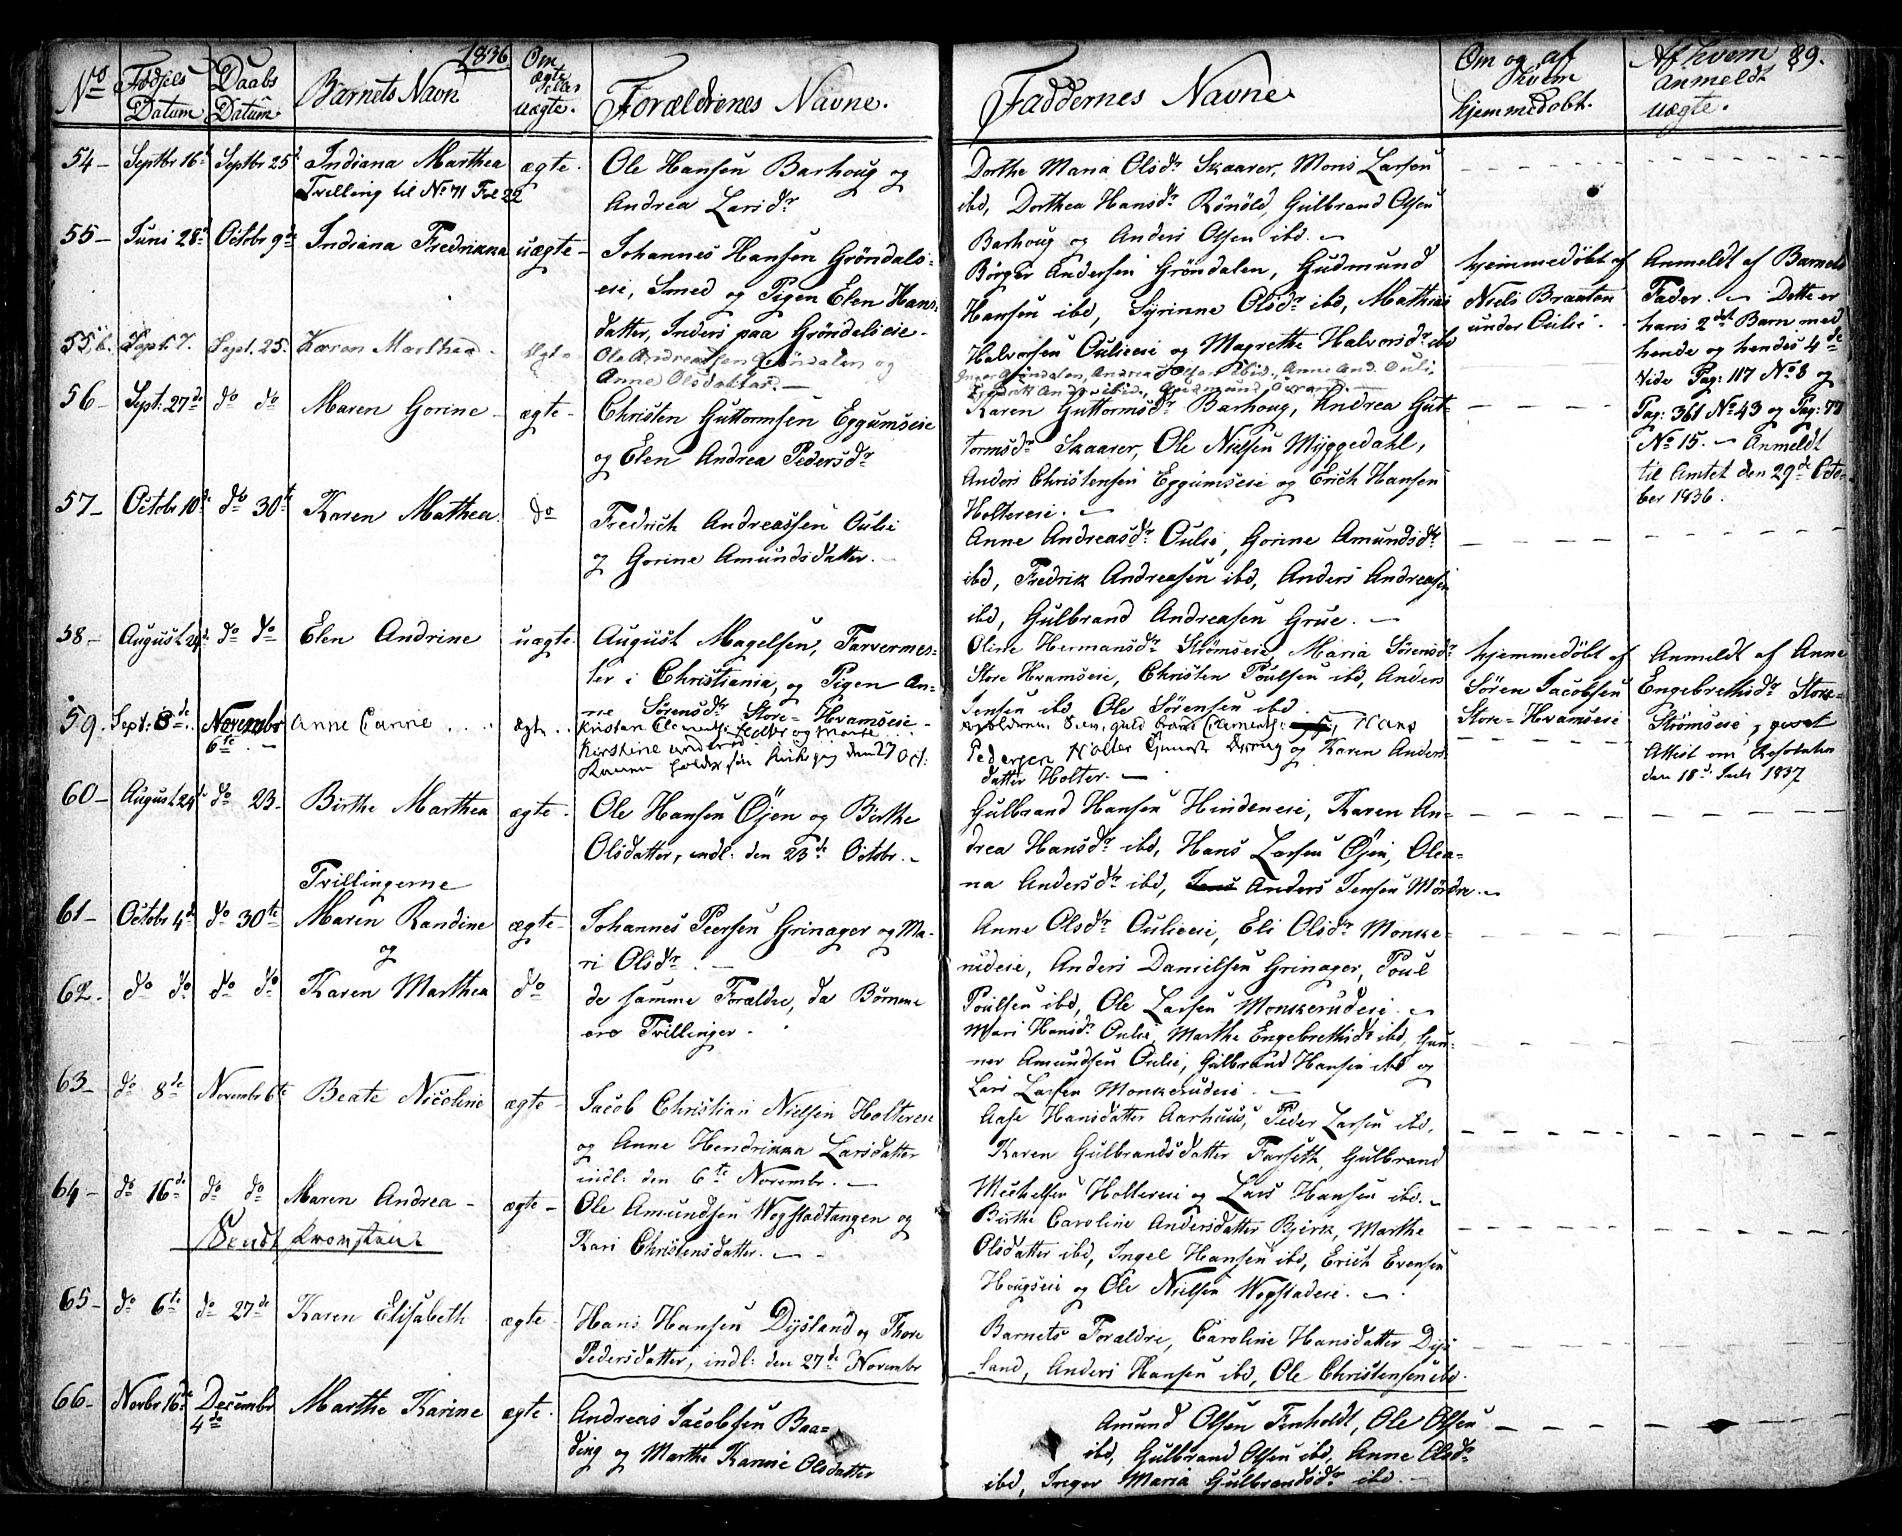 1836
No
Fødsels
Datum
Daabs
Datum
Barnets Navn
Om
ægte
eller
uægte.
Forældrenes Navne.
Faddernes Navne.
Om og af
hvem
hjemmedøbt.
Af hvem
anmeldt
uægte.
89.
54 Septbr 16d Septbr 25d Indiana Marthea ægte. Ole Hansen Barhoug og
Tvilling til No 71 Fol 22
Andrea Larsdr
Dorthe Maria Olsdr Skaarer, Mons Larsen
ibd, Dorthea Hansdr Rönöld, Gulbrand Olsen
Barhoug og Anders Olsen ibd.
55 Juni 28d Octobr 9de Indiana Fredrikka uægte Johannes Hansen Gröndals-
eie, Smed og Pigen Elen Hans-
datter, Inders paa Gröndalseie
Börger Andersen Gröndalen, Gudmund
Hansen ibd, Syrinne Olsdr ibd, Mathias
Halvorsen Oulieeie og Magrethe Halvorsdr ibd
hjemmedöbt af
Niels Braaten
under Oulie.
Anmeldt af Barnets
Fader. Dette er
hans 2det Barn med
hende og hendes 4de
Vide Pag: 117 No 8 og
Pag: 361 No 43 og Pag: 77
No 15. Anmeldt
til Amtet den 29de Octo-
ber 1836.
55 b. Sept. 7. Sept. 25. Karen Marthea. Ægte Ole Andreassen Gröndalen og
Anne Olsdatter.
Inger Gröndalen, Andrea Olsen ibid., Anne And. Ouli,
Fredrik And. ibid., Gudmund
56 Sept: 27de do do Maren Gorine ægte Christen Guttormsen Eggumseie
og Elen Andrea Pedersdr
Karen Guttormsdr Barhoug, Andrea Gut-
tormsdr Skaarer, Ole Nielsen Myggedahl,
Anders Christensen Eggumseie og Erich Hansen
Holtereie.
57 Octobr 10de do 30te Karen Mathea do Fredrich Andreassen Oulie
og Gorine Amundsdatter.
Anne Andreasdr Oulie, Gorine Amundsdr
ibd, Fredrik Andreasen ibd, Anders Andreasen
ibd, Gulbrand Andreasen Grue.
58 August 24d do do Elen Andrine uægte August Magelsen, Farvermes-
ter i Christiania, og Pigen An-
ne Sörensdr Store-Hvamseie
Oline Hermansdr Strömseie, Maria Sörensdr
Store Hvamseie, Christen Poulsen ibd, Anders
Jensen ibd, Ole Sörensen ibd.
hjemmedöbt af
Sören Jacobsen
Store-Hvamseie
Anmeldt af Anne
Engebrethsdr Store-
Strömseie,
Attest om
den 18d Juli 1837
59. Sept: 8de Novembr
6te
Anne ægte Kristen Clements: Holter og Marte
Kirstine
Hans
Pedersen Holter og Karen Anders
datter Holter.
60 August 24d do 23 Birthe Marthea ægte. Ole Hansen Öjen og Birthe
Olsdatter, indl: den 23de Octobr.
Gulbrand Hansen Hindeneie, Karen An-
drea Hansdr ibd, Hans Larsen Öjen, Olea-
na Andersdr ibd, Jens Anders Jensen Mördre.
Tvillingerne
61 Octobr 4d do 30te Maren Randine ægte Johannes Peersen Grinager og Ma-
og
ri Olsdr.
Anne Olsdr Oulieeie, Eli Olsdr Monske-
rudeie, Anders Danielsen Grinager, Poul
Poulsen ibd, Ole Larsen Monskerudeie.
62. do do do do Karen Marthea do de samme Forældre, da Börnene
ere Tvillinger.
Mari Hansdr Oulie, Marthe Engebrethsdr ibd, Gun-
ner Amundsen Oulie, Gulbrand Hansen ibd og
Lars Larsen Monskerudeie.
63 do 8de Novembr 6te Beate Nicoline ægte Jacob Christian Nielsen Holtereie
og Anne Hendrikka Larsdatter
indl: den 6te Novembr.
Aase Hansdatter Aarhuus, Peder Larsen ibd,
Karen Gulbrandsdatter Forseth, Gulbrand
Michelsen Holtereie og Lars Hansen ibd.
64 do 16de do do Maren Andrea ægte Ole Amundsen Wogstadtangen og
Kari Christensdatter.
Birthe Caroline Andersdatter Bjerk, Marthe
Olsdatter ibd, Ingel Hansen ibd, Erich Evensen
Hougseie og Ole Nielsen Wogstadeie.
65 do 6te do 27de Karen Elisabeth ægte Hans Hansen Dysland og Thore
Pedersdatter, indl: den 27de Novembr
Barnets Forældre, Caroline Hansdatter Dys-
land, Anders Hansen ibd, Ole Christensen ibd.
66 Novbr 16de Decembr
4de
Marthe Karine ægte. Andreas Jacobsen Baa-
ding og Marthe Karine Olsdatter
Amund Olsen Tinholdt, Ole Olsen
ibd, Gulbrand Olsen ibd, Anne Olsdr
ibd, Inger Maria Gulbrandsdr ibd.